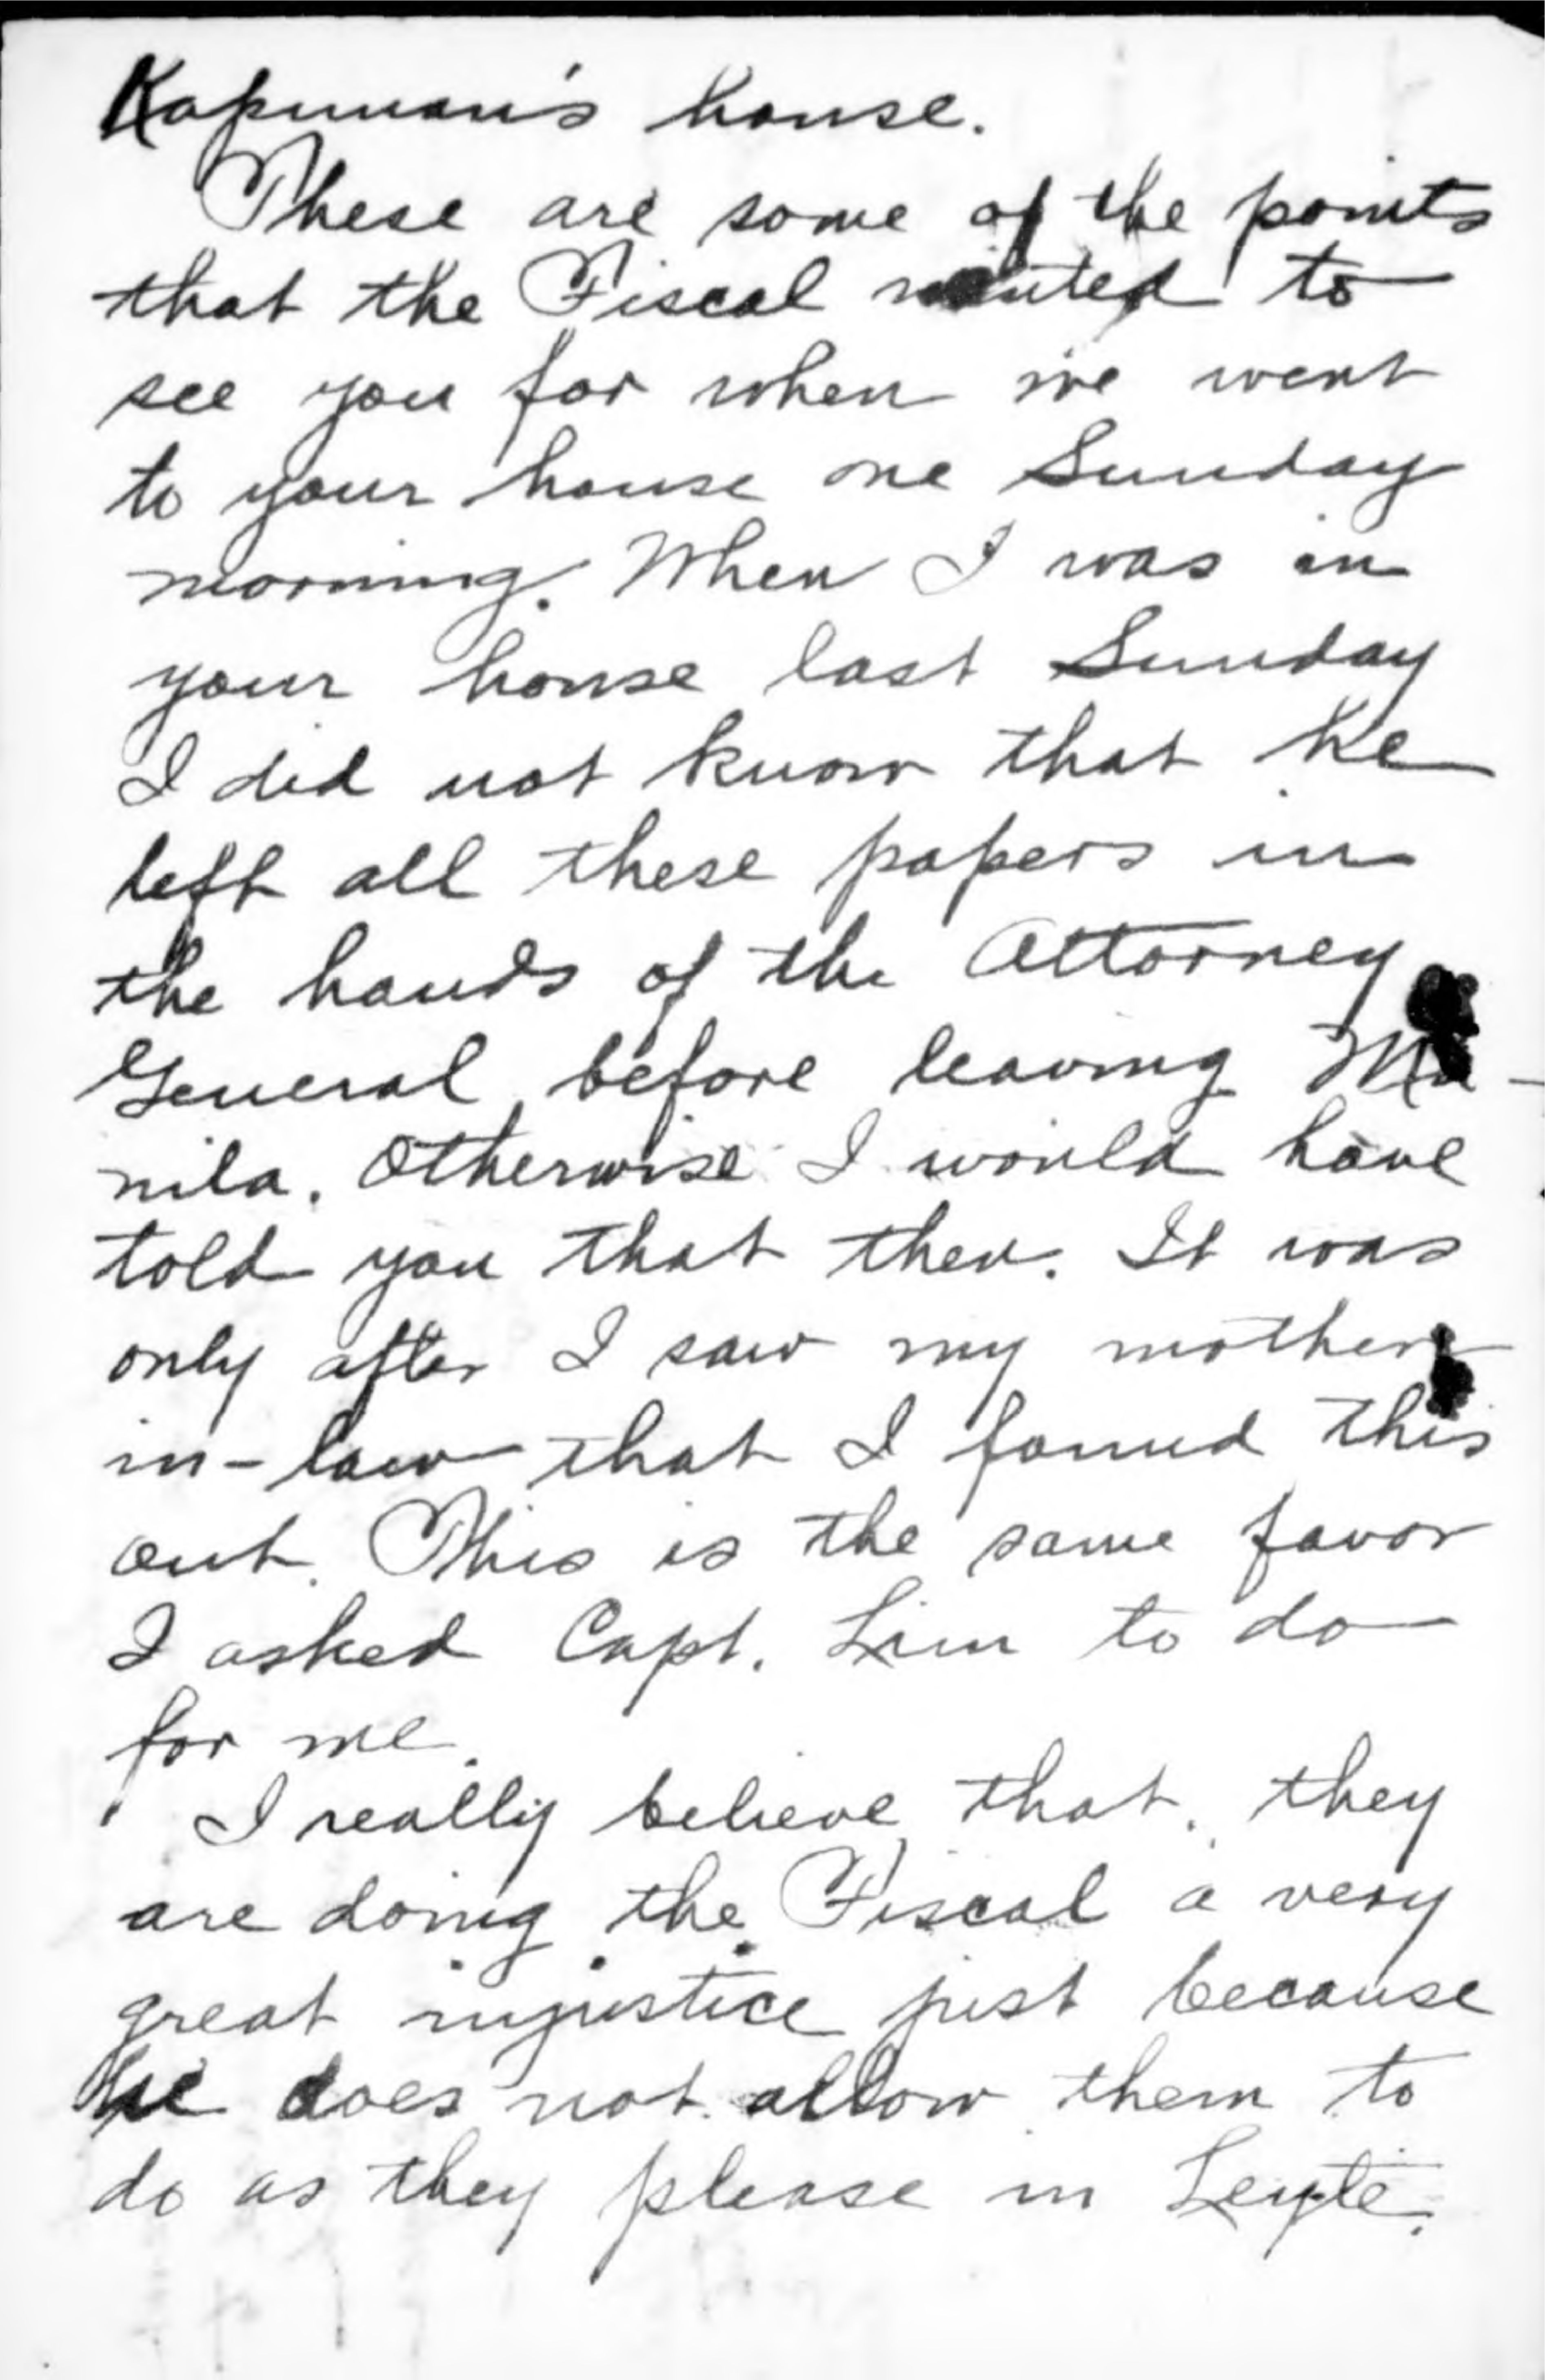 Kapunan's house.
These are some of the points
that the Fiscal wanted to
see you for when we went
to your house one Sunday
morning. When I was in
your house last Sunday
I did not know that he
left all these papers in
the hands of the Attorney
General before leaving Ma-
nila. Otherwise I would have
told you that then. It was
only after I saw my mother
in-law that I found this
out. This is the same favor
I asked Capt. Lim to do
for me.
I really believe that they
are doing the Fiscal a very
great injustice just because
he does not allow them to
do as they please in Leyte.